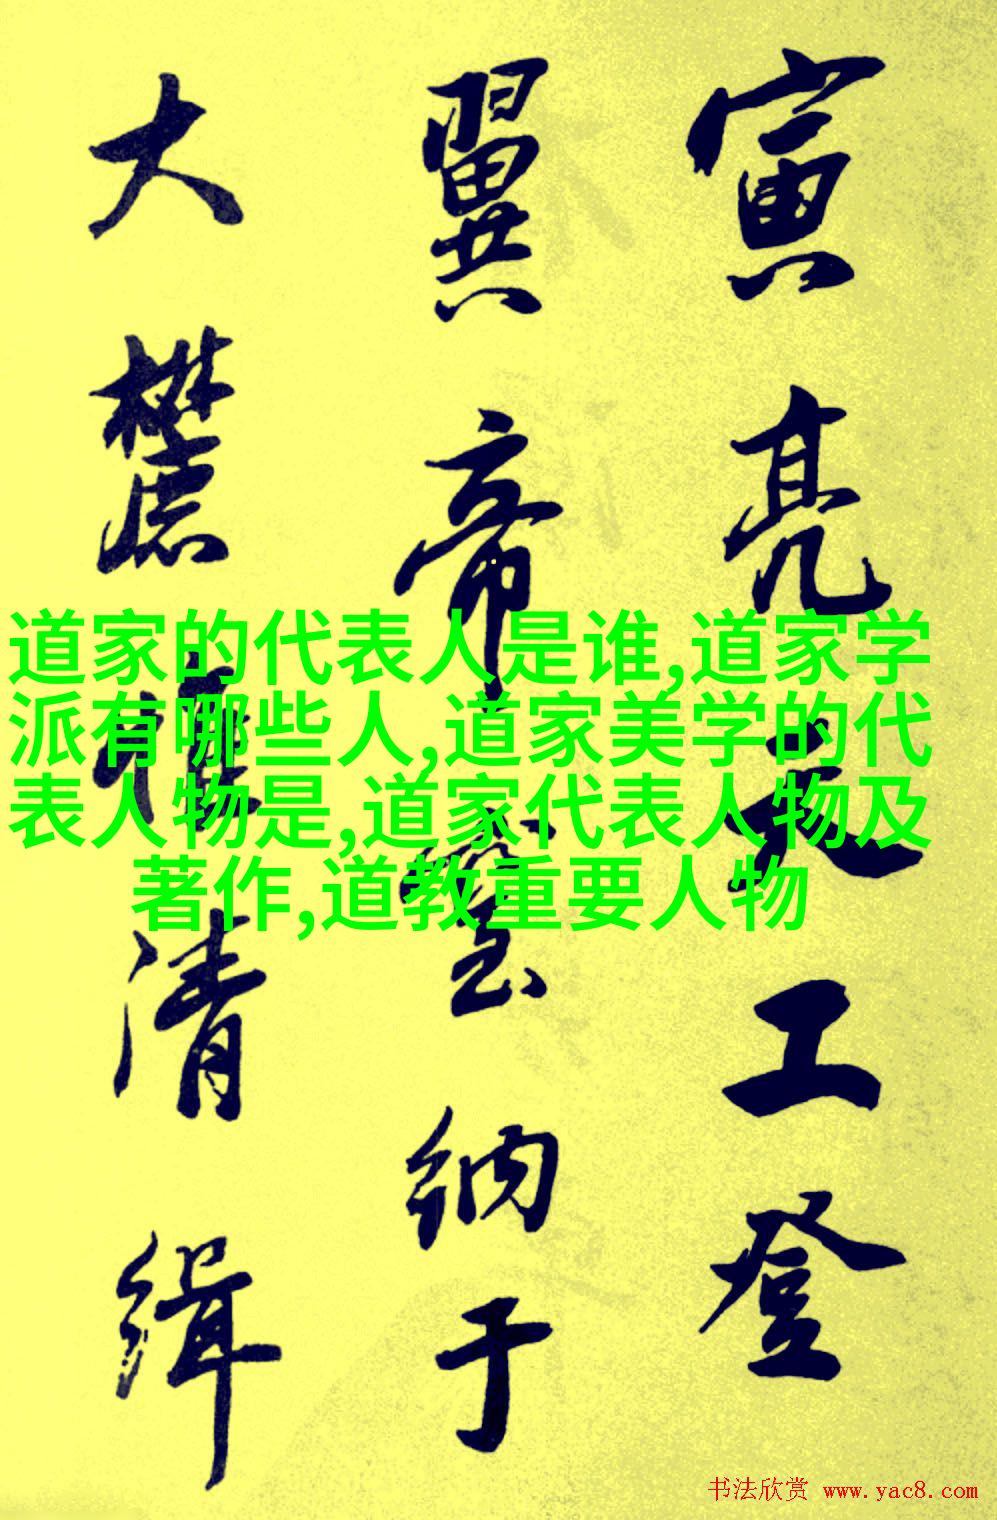 寅亮天工登
翼帝
纳于
大麓
清缉
道家的代表人是谁,道家学
派有哪些人,道家美学的代
表人物是,道家代表人物及
著作,道教重要人物
书法欣赏 www.yac8.com